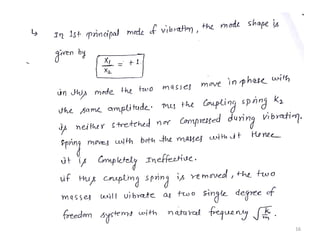 ↳ In 1st principal mode of vibration, the mode shape is
given by
x1/x2 = +1
in this mode the two masses move in phase with
the same amplitude. Thus the Coupling spring k2
is neither stretched nor Compressed during vibration.
Spring moves with both the masses with it Hence
it is Completely Ineffective.
if this coupling spring is removed, the two
masses will vibrate as two single degree of
freedom systems with natural frequency √(k/m).
16